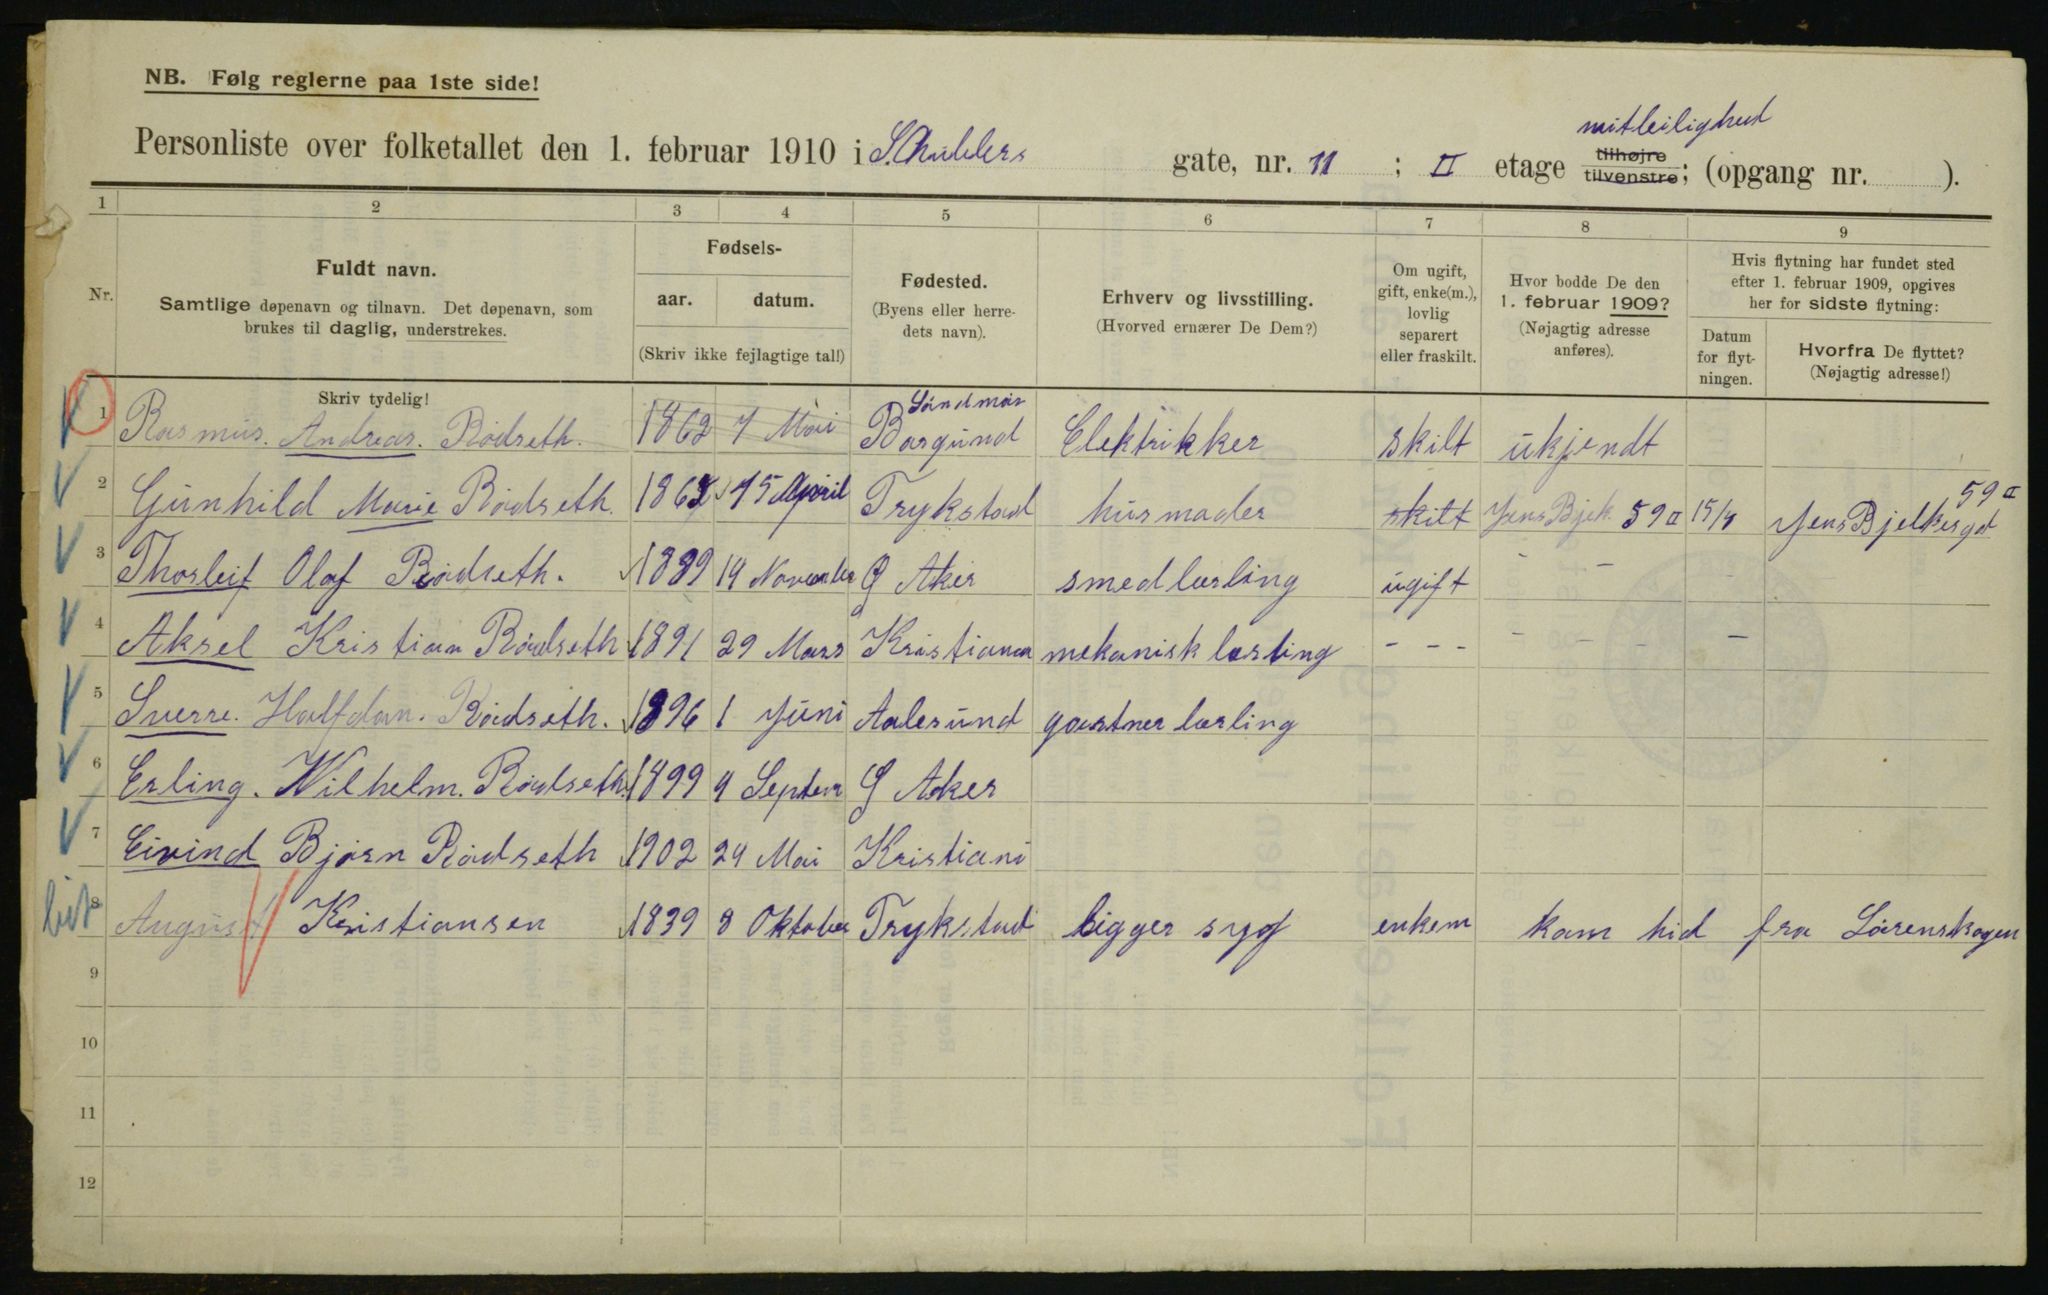 NB. Følg reglerne paa 1ste side!
mitleilighed
Personliste over folketallet den 1. februar 1910 i gate, nr. 11 ; II etage tilhøjre tilvenstre; (opgang nr. ).
1 2 3 4 5 6 7 8 9
Nr.
Fuldt navn.
Samtlige døpenavn og tilnavn. Det døpenavn, som
brukes til daglig, understrekes.
Skriv tydelig!
Fødsels-
aar. datum.
(Skriv ikke fejlagtige tal!)
Fødested.
(Byens eller herre-
dets navn).
Erhverv og livsstilling.
(Hvorved ernærer De Dem?)
Om ugift,
gift, enke(m.),
lovlig
separert
eller fraskilt.
Hvor bodde De den
1. februar 1909?
(Nøjagtig adresse
anføres).
Hvis flytning har fundet sted
efter 1. februar 1909, opgives
her for sidste flytning:
Datum
for flyt-
ningen.
Hvorfra De flyttet?
(Nøjagtig adresse!)
1 Rasmus. Andreas. Rødseth. 1862 7 Mai Søndmør Borgund Elektrikker skilt ukjendt
2 Gunhild Marie Rødseth. 1863 15 April Trykstad husmoder skilt Jens Bjelk. 59 II 15/4 Jens Bjelkesgd 59 II
3 Thorleif Olaf Rødseth. 1889 14 November Ø Aker smedlærling ugift - -
4 Aksel Kristian Rødseth 1891 29 Mars Kristiania mekanisk lærling - - - - - - -
5 Sverre. Halfdan. Rødseth. 1896 1 Juni Aalesund gartner lærling
6 Erling. Wilhelm. Rødseth. 1899 9 Septem Ø Aker
7 Eivind Bjørn Rødseth 1902 24 Mai Kristiani
8 August Kristiansen 1839 8 Oktober Trykstad ligger syg enkem kom hid fra Lørenskogen
9
10
11
12